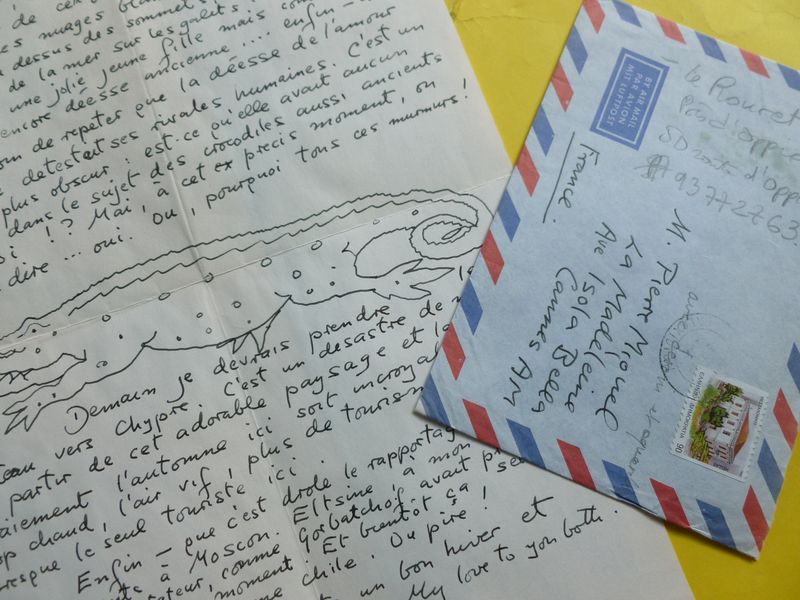 de cer
es nuages blan
dessus des sommets,
de la mer sur les galets
une jolie jeune fille mais com
encore déesse ancienne .... enfin –
oin de repeter que la déesse de l'amour
e detestait ses rivales humaines. C'est un
plus obscur : est-ce qu'elle avait aucun
dans le sujet des crocodiles aussi ancients
oi !? Mai, à cet ex precis moment, on
dère ... oui. Ou, pourquoi tous ces murmurs!
Demain je devrais prendre le
eau vers Chypre. C'est un desastre de
partir de cet adorable paysage et la
aiement l'automne ici soit incroyab
op chaud, l'air vif, plus de tourism
resque le seul touriste ici.
Enfin – que c'est drole le rapportag
à Moscou. Eltsine, à mon
ateur, comme Gorbatchof avait pr
moment Et bientôt ça se
ne chile. Ou pire!
un bon hiver et
My love to you both.
BY AIR MAIL
PAR AVION
MIT LUFTPOST
Le Rouret
50 route d'Opp
93772763
M. Pierre Miquel
La Madeleine
Ave Isola Bella
Cannes AM
France.
90